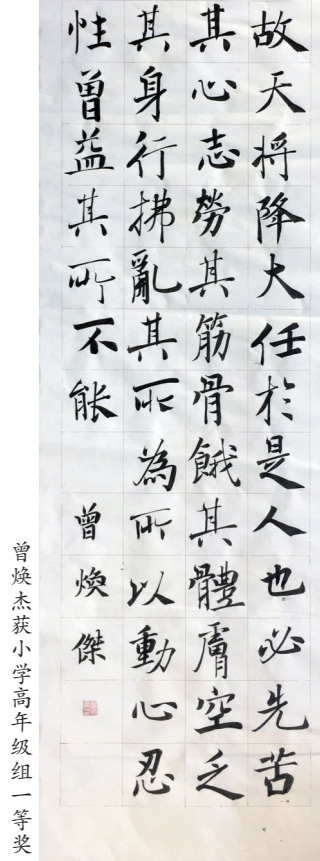 故天将降大任於是人也必先苦
其心志勞其筋骨餓其體膚空乏
其身行拂亂其所為所以動心忍
性曾益其所不能 曾煥傑
曾焕杰获小学高年级组一等奖